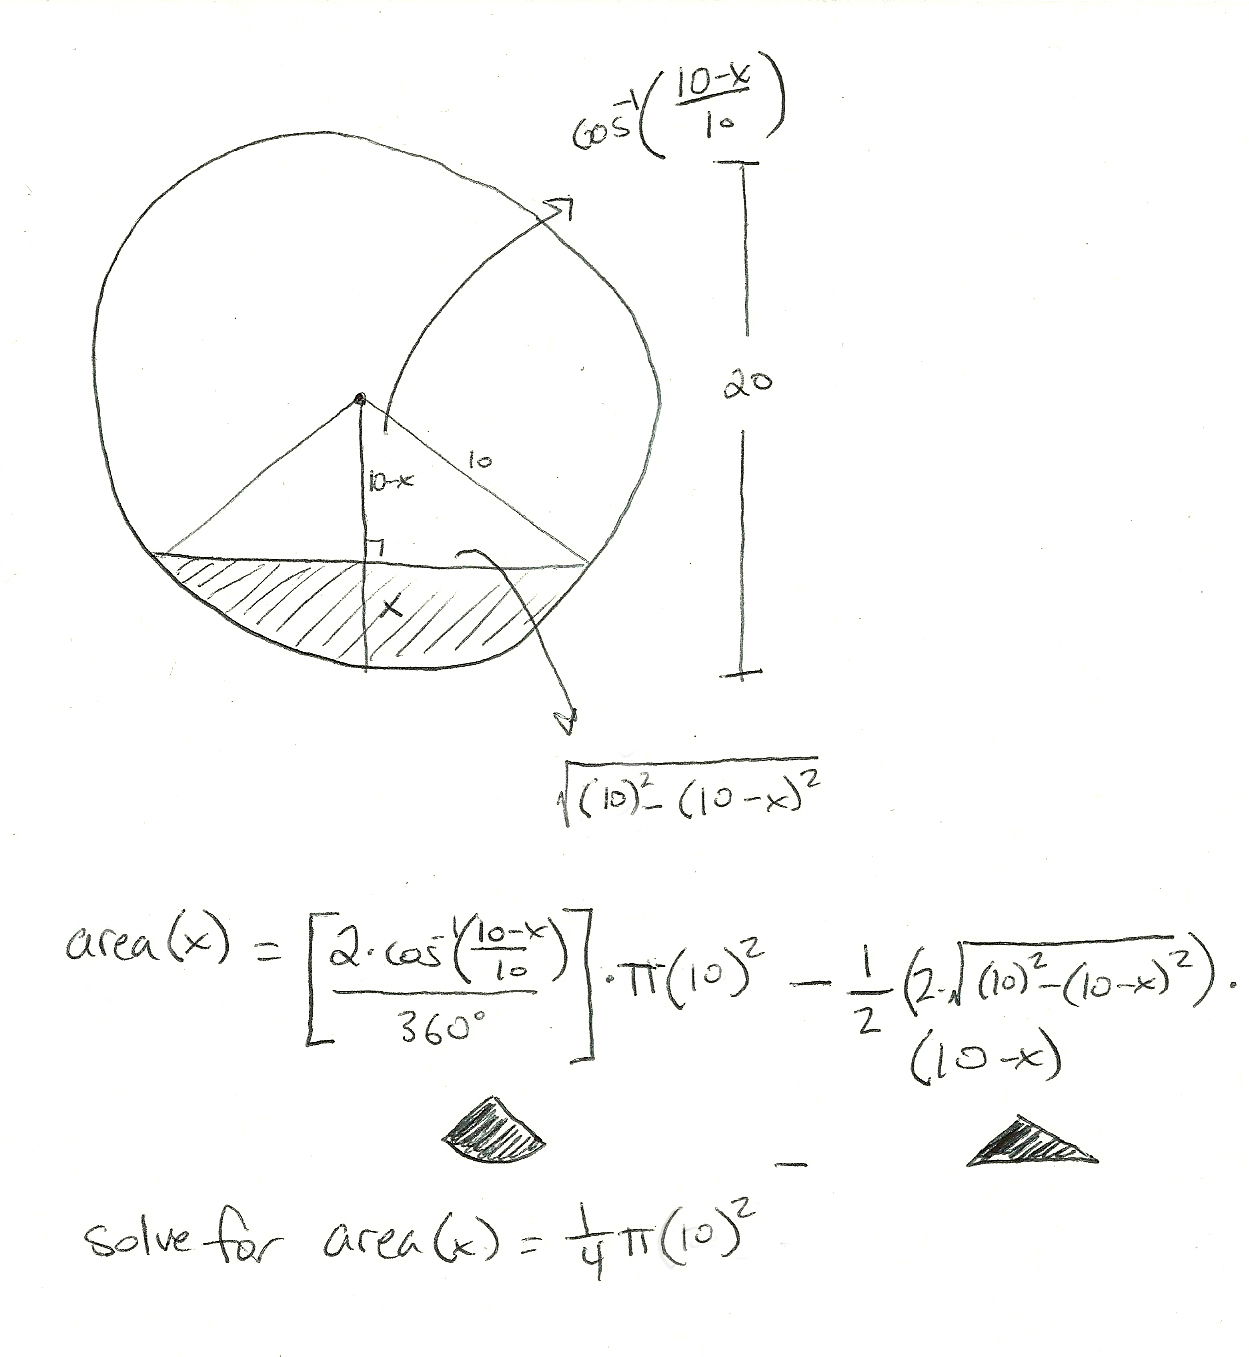 cos⁻¹(10-x/10)
20
10
10-x
x
√(10)²-(10-x)²
area(x) = [2·cos⁻¹(10-x/10)/360°]·π(10)² - 1/2(2·√(10)²-(10-x)²)·
(10-x)
-
solve for area(x) = 1/4π(10)²